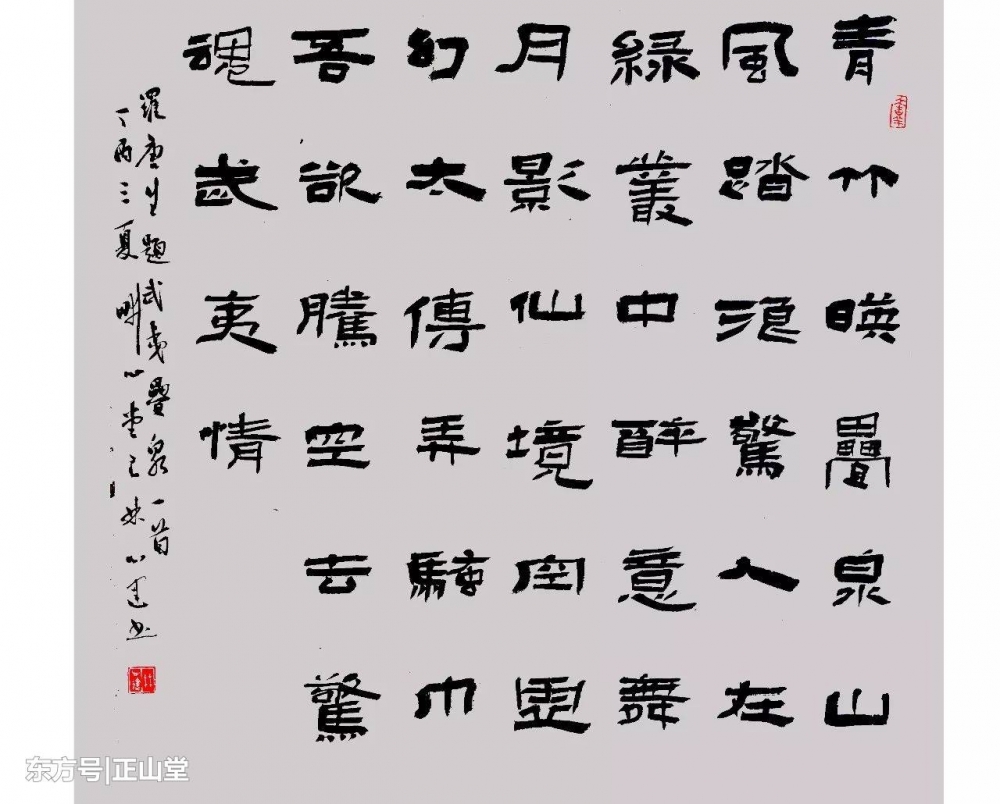 青竹暎疊泉山
風踏浪驚人在
綠叢中醉意舞
月影仙境
幻太弄巾
吾欲騰空去驚
魂武夷情
羅唐生題武夷疊泉一首
丁酉三夏明心堂
东方号|正山堂